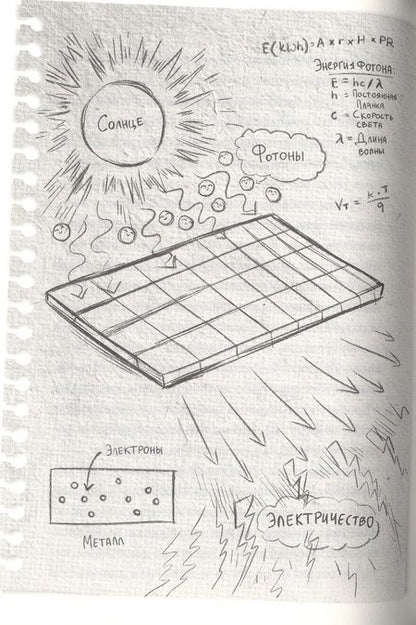 E(kWh)=A×r×H×PR
Энергия Фотона:
E = hc/λ
h = Постоянная
Планка
c = Скорость
света
λ = Длина
волны
Vт = к·T/q
Солнце
Фотоны
Электроны
Металл
Электричество